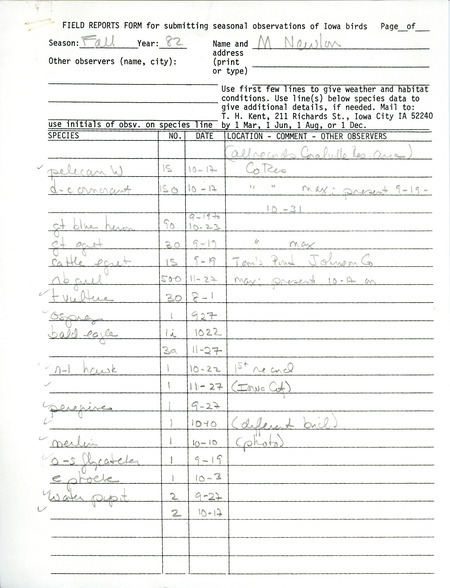 FIELD REPORTS FORM for submitting seasonal observations of Iowa birds Page__of__
Season: Fall Year: 82 Name and address (print or type) M Newlon
Other observers (name, city):
Use first few lines to give weather and habitat
conditions. Use line(s) below species data to
give additional details, if needed. Mail to:
T. H. Kent, 211 Richards St., Iowa City IA 52240
use initials of obsv. on species line by 1 Mar, 1 Jun, 1 Aug, or 1 Dec.
SPECIES NO. DATE LOCATION - COMMENT - OTHER OBSERVERS
(all records Coralville Res area)
pelican W 15 10-17 Co Res
d-c cormorant 150 10-17 " " max: present 9-19-
10-31
9-19 to
gt blue heron 90 10-23
gt egret 30 9-19 " max
cattle egret 15 9-19 Johnson Co
rb gull 500 11-22 max: present on
t vulture 30 8-1
osprey 1 927
bald eagle 1i 1022
3a 11-27
r-l hawk 1 10-22 1st record
1 11-27 (Iowa City)
peregrine 1 9-27
1 10-10 (different bird)
merlin 1 10-10 (photo)
o-s flycatcher 1 9-19
e phoebe 1 10-3
water pipit 2 9-27
2 10-17